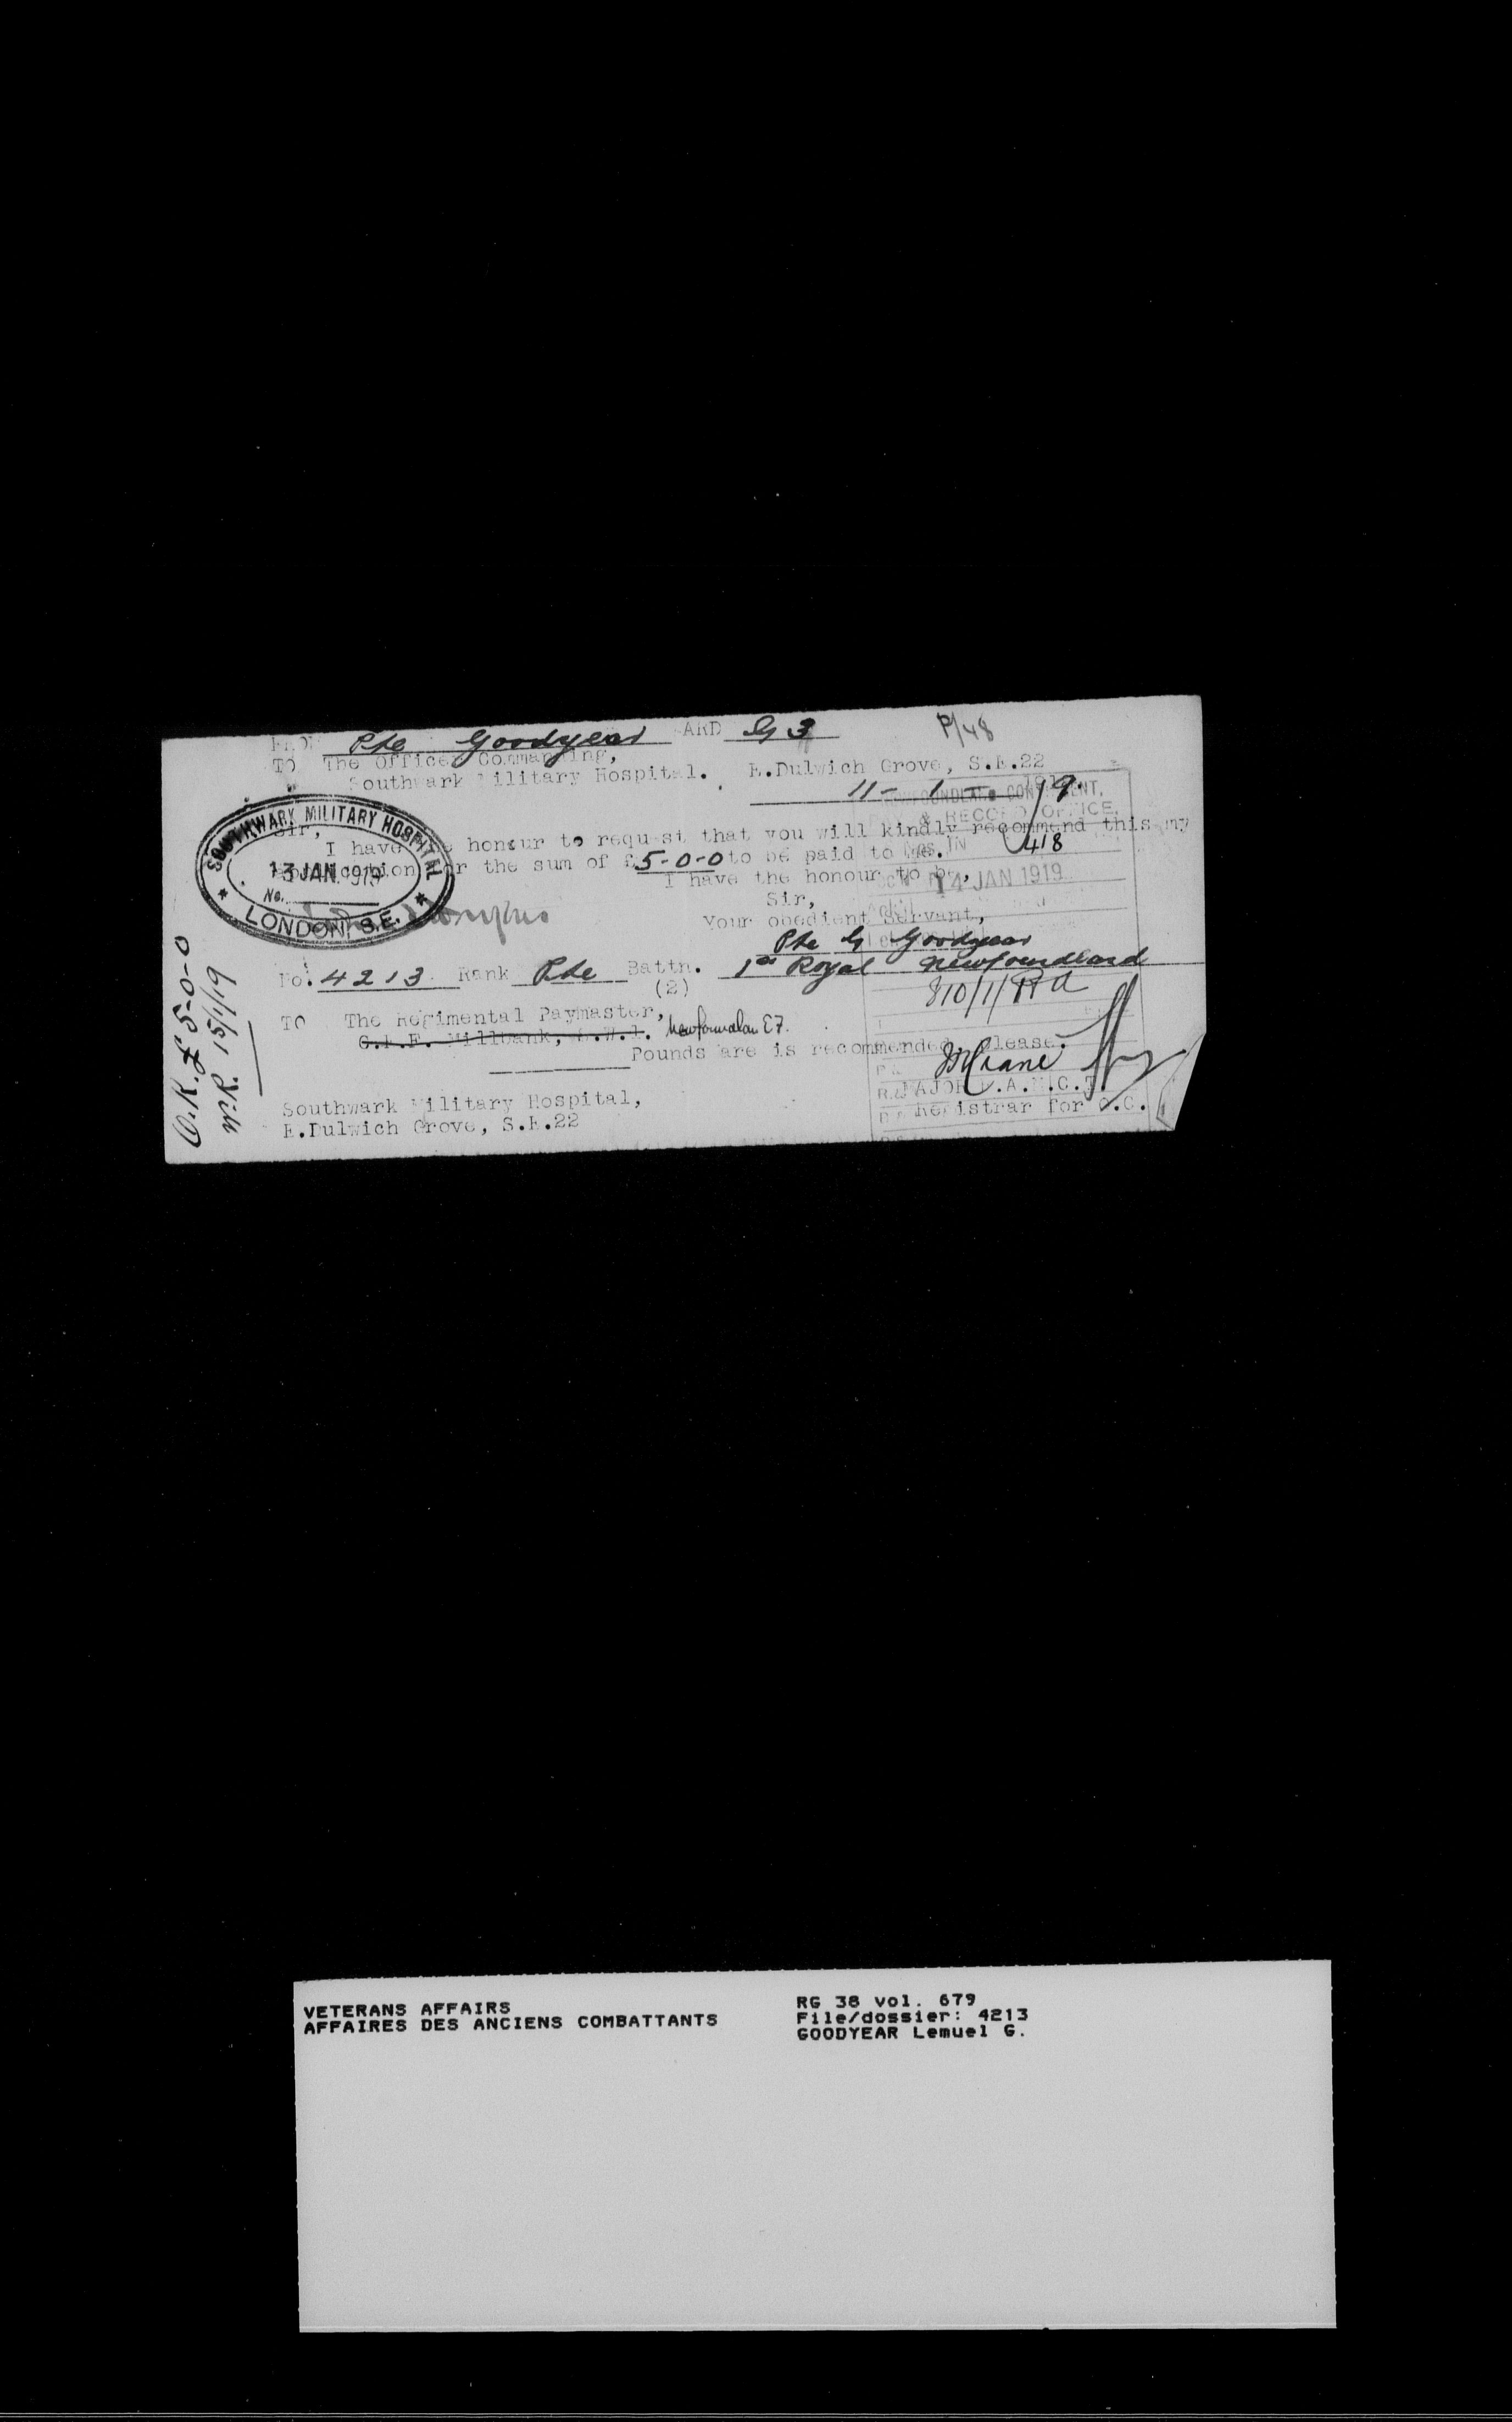 P/48
FROM Pte Goodyear WARD G 3
TO The Officer Commanding,
Southwark Military Hospital. E.Dulwich Grove, S.E.22
11 - 1 - 19.
NEWFOUNDLAND CONTINGENT,
& RECORD OFFICE
Sir,
I have the honour to request that you will kindly recommend this my
application for the sum of £5-0-0 to be paid to me.
418
I have the honour to be,
14 JAN 1919
Sir,
Your obedient Servant,
Pte G Goodyear
SOUTHWARK MILITARY HOSPITAL
13 JAN. 1919
No.
LONDON, S.E.
No. 4213 Rank Pte Battn. 1st Royal Newfoundland
(2)
810/1/
TO The Regimental Paymaster,
G.P.F. Millbank, S.W.1.
Pounds are is recommended, please.
MAJOR R.A.M.C.T.
Registrar for O.C.
Southwark Military Hospital,
E.Dulwich Grove, S.E.22
O.K. £5-0-0
W.R. 15/1/19
VETERANS AFFAIRS
AFFAIRES DES ANCIENS COMBATTANTS
RG 38 vol. 679
File/dossier: 4213
GOODYEAR Lemuel G.